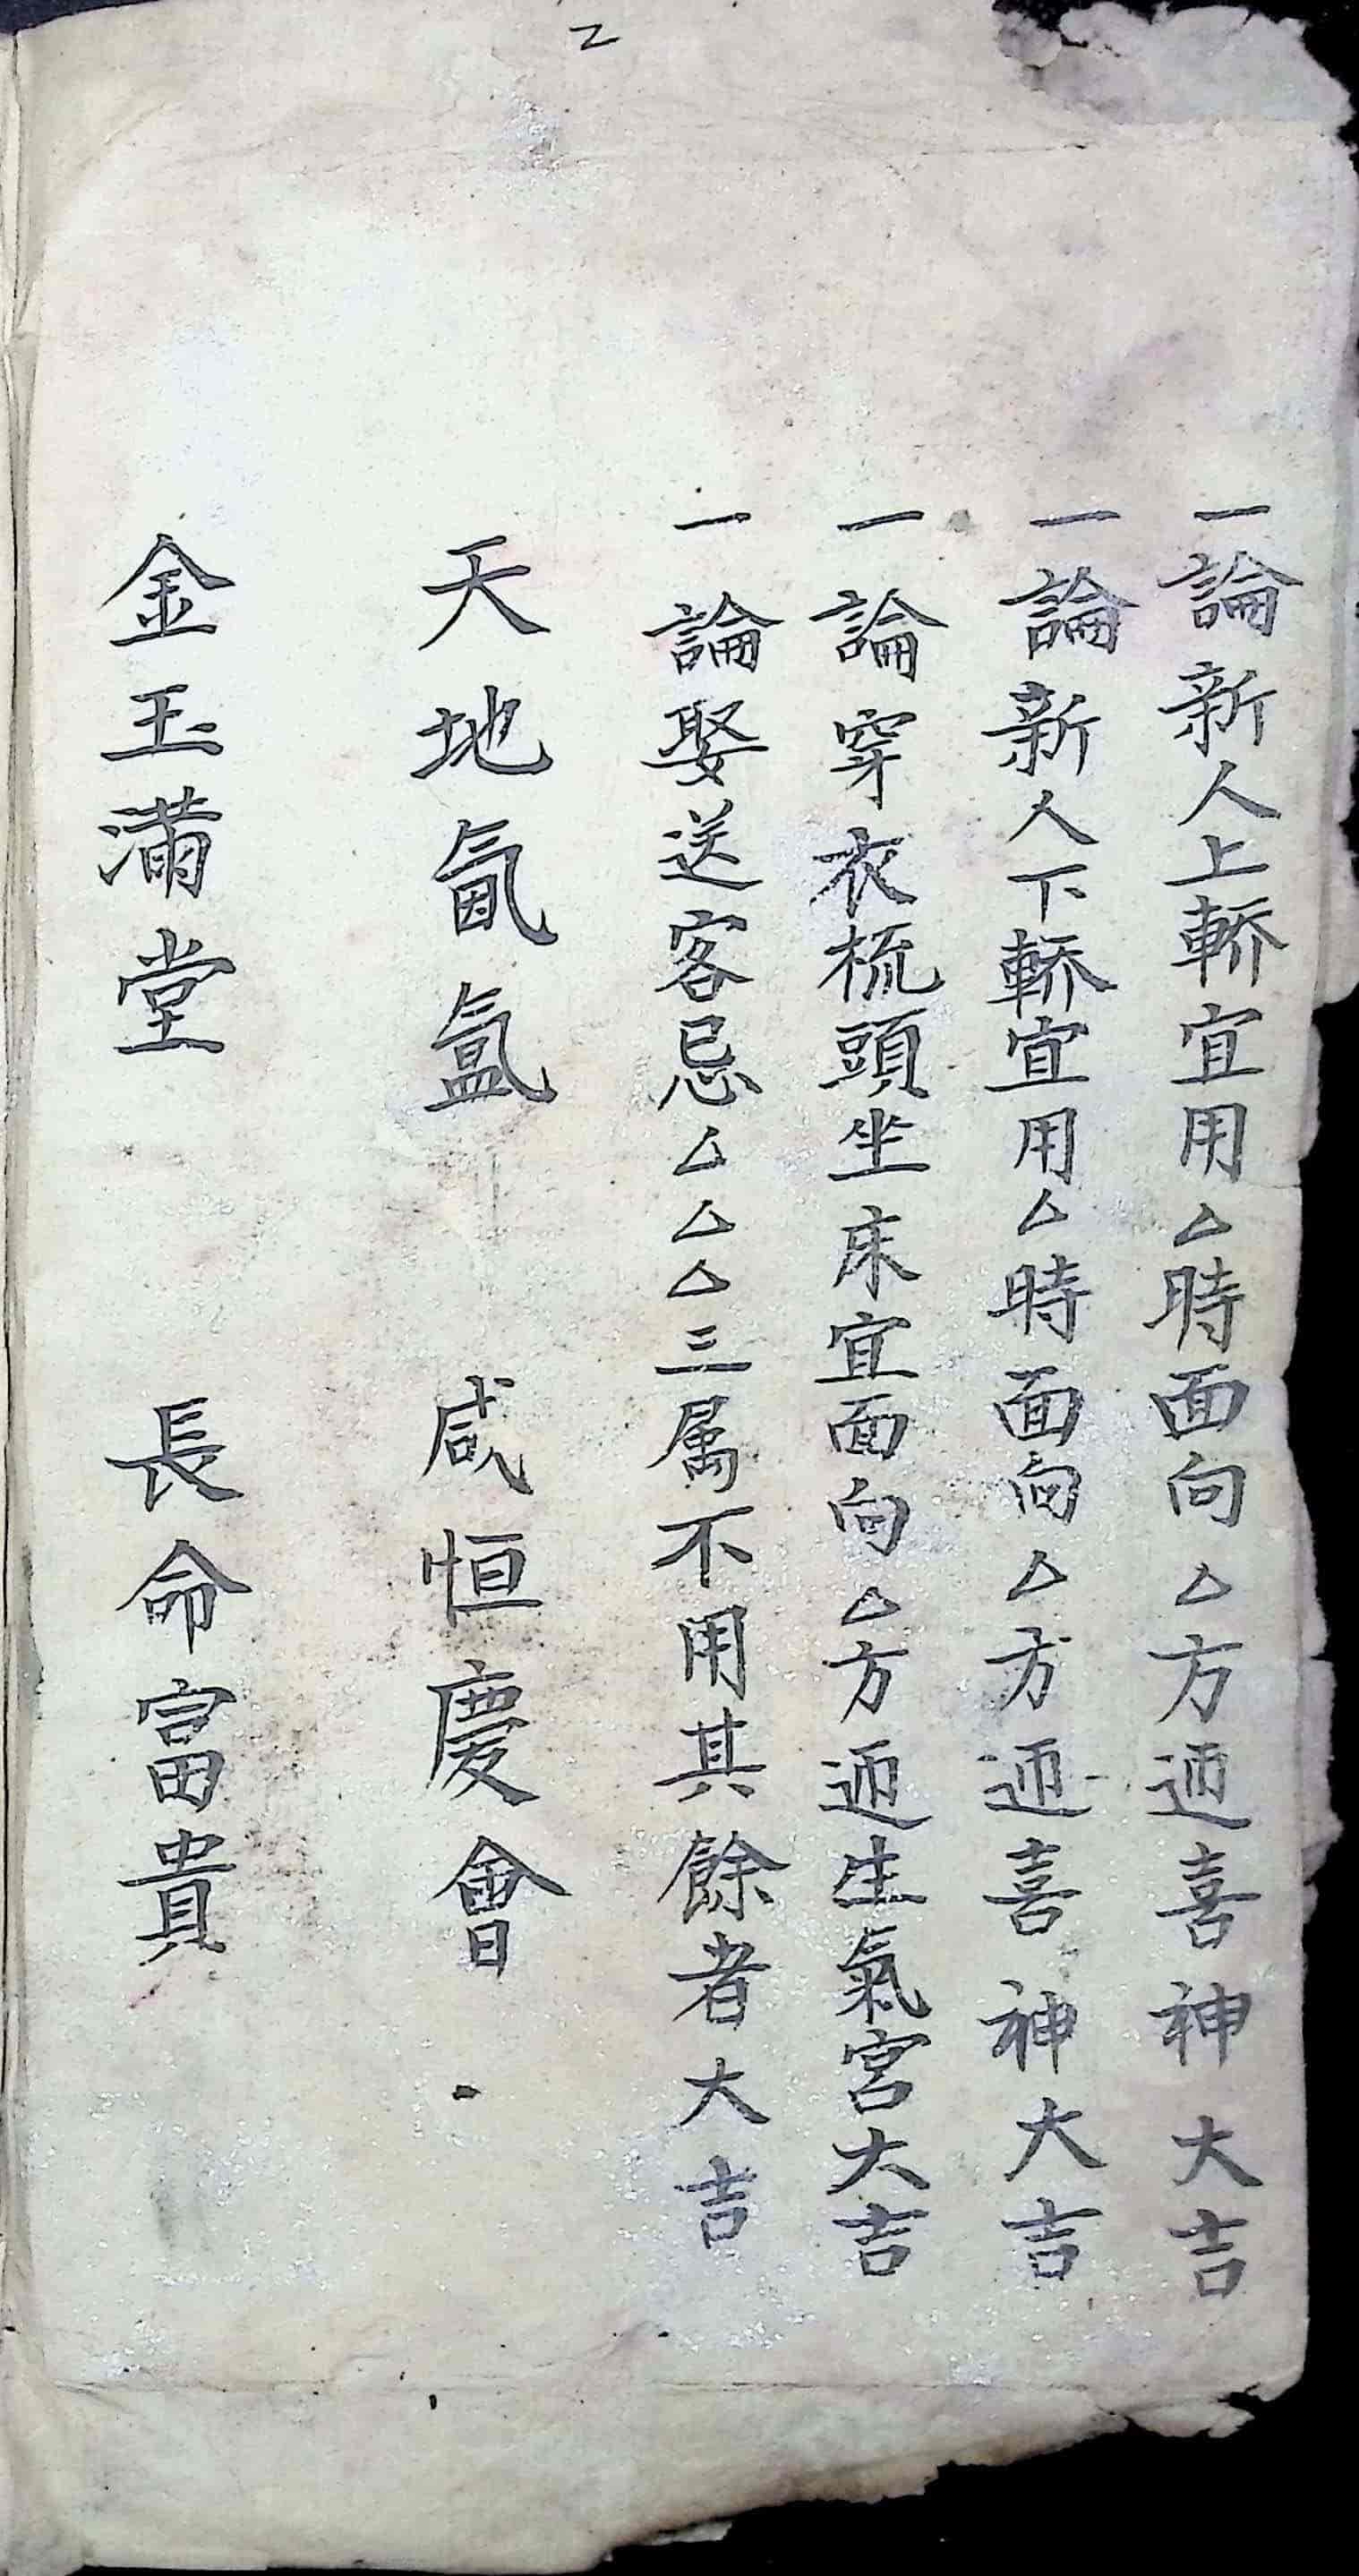 2
一論新人上轎宜用△時面向△方迊喜神大吉
一論新人下轎宜用△時面向△方迊喜神大吉
一論穿衣梳頭坐床宜面向△方迊生氣宮大吉
一論娶送客忌△△△三属不用其餘者大吉
天地氤氳 咸恒慶會
金玉滿堂 長命富貴